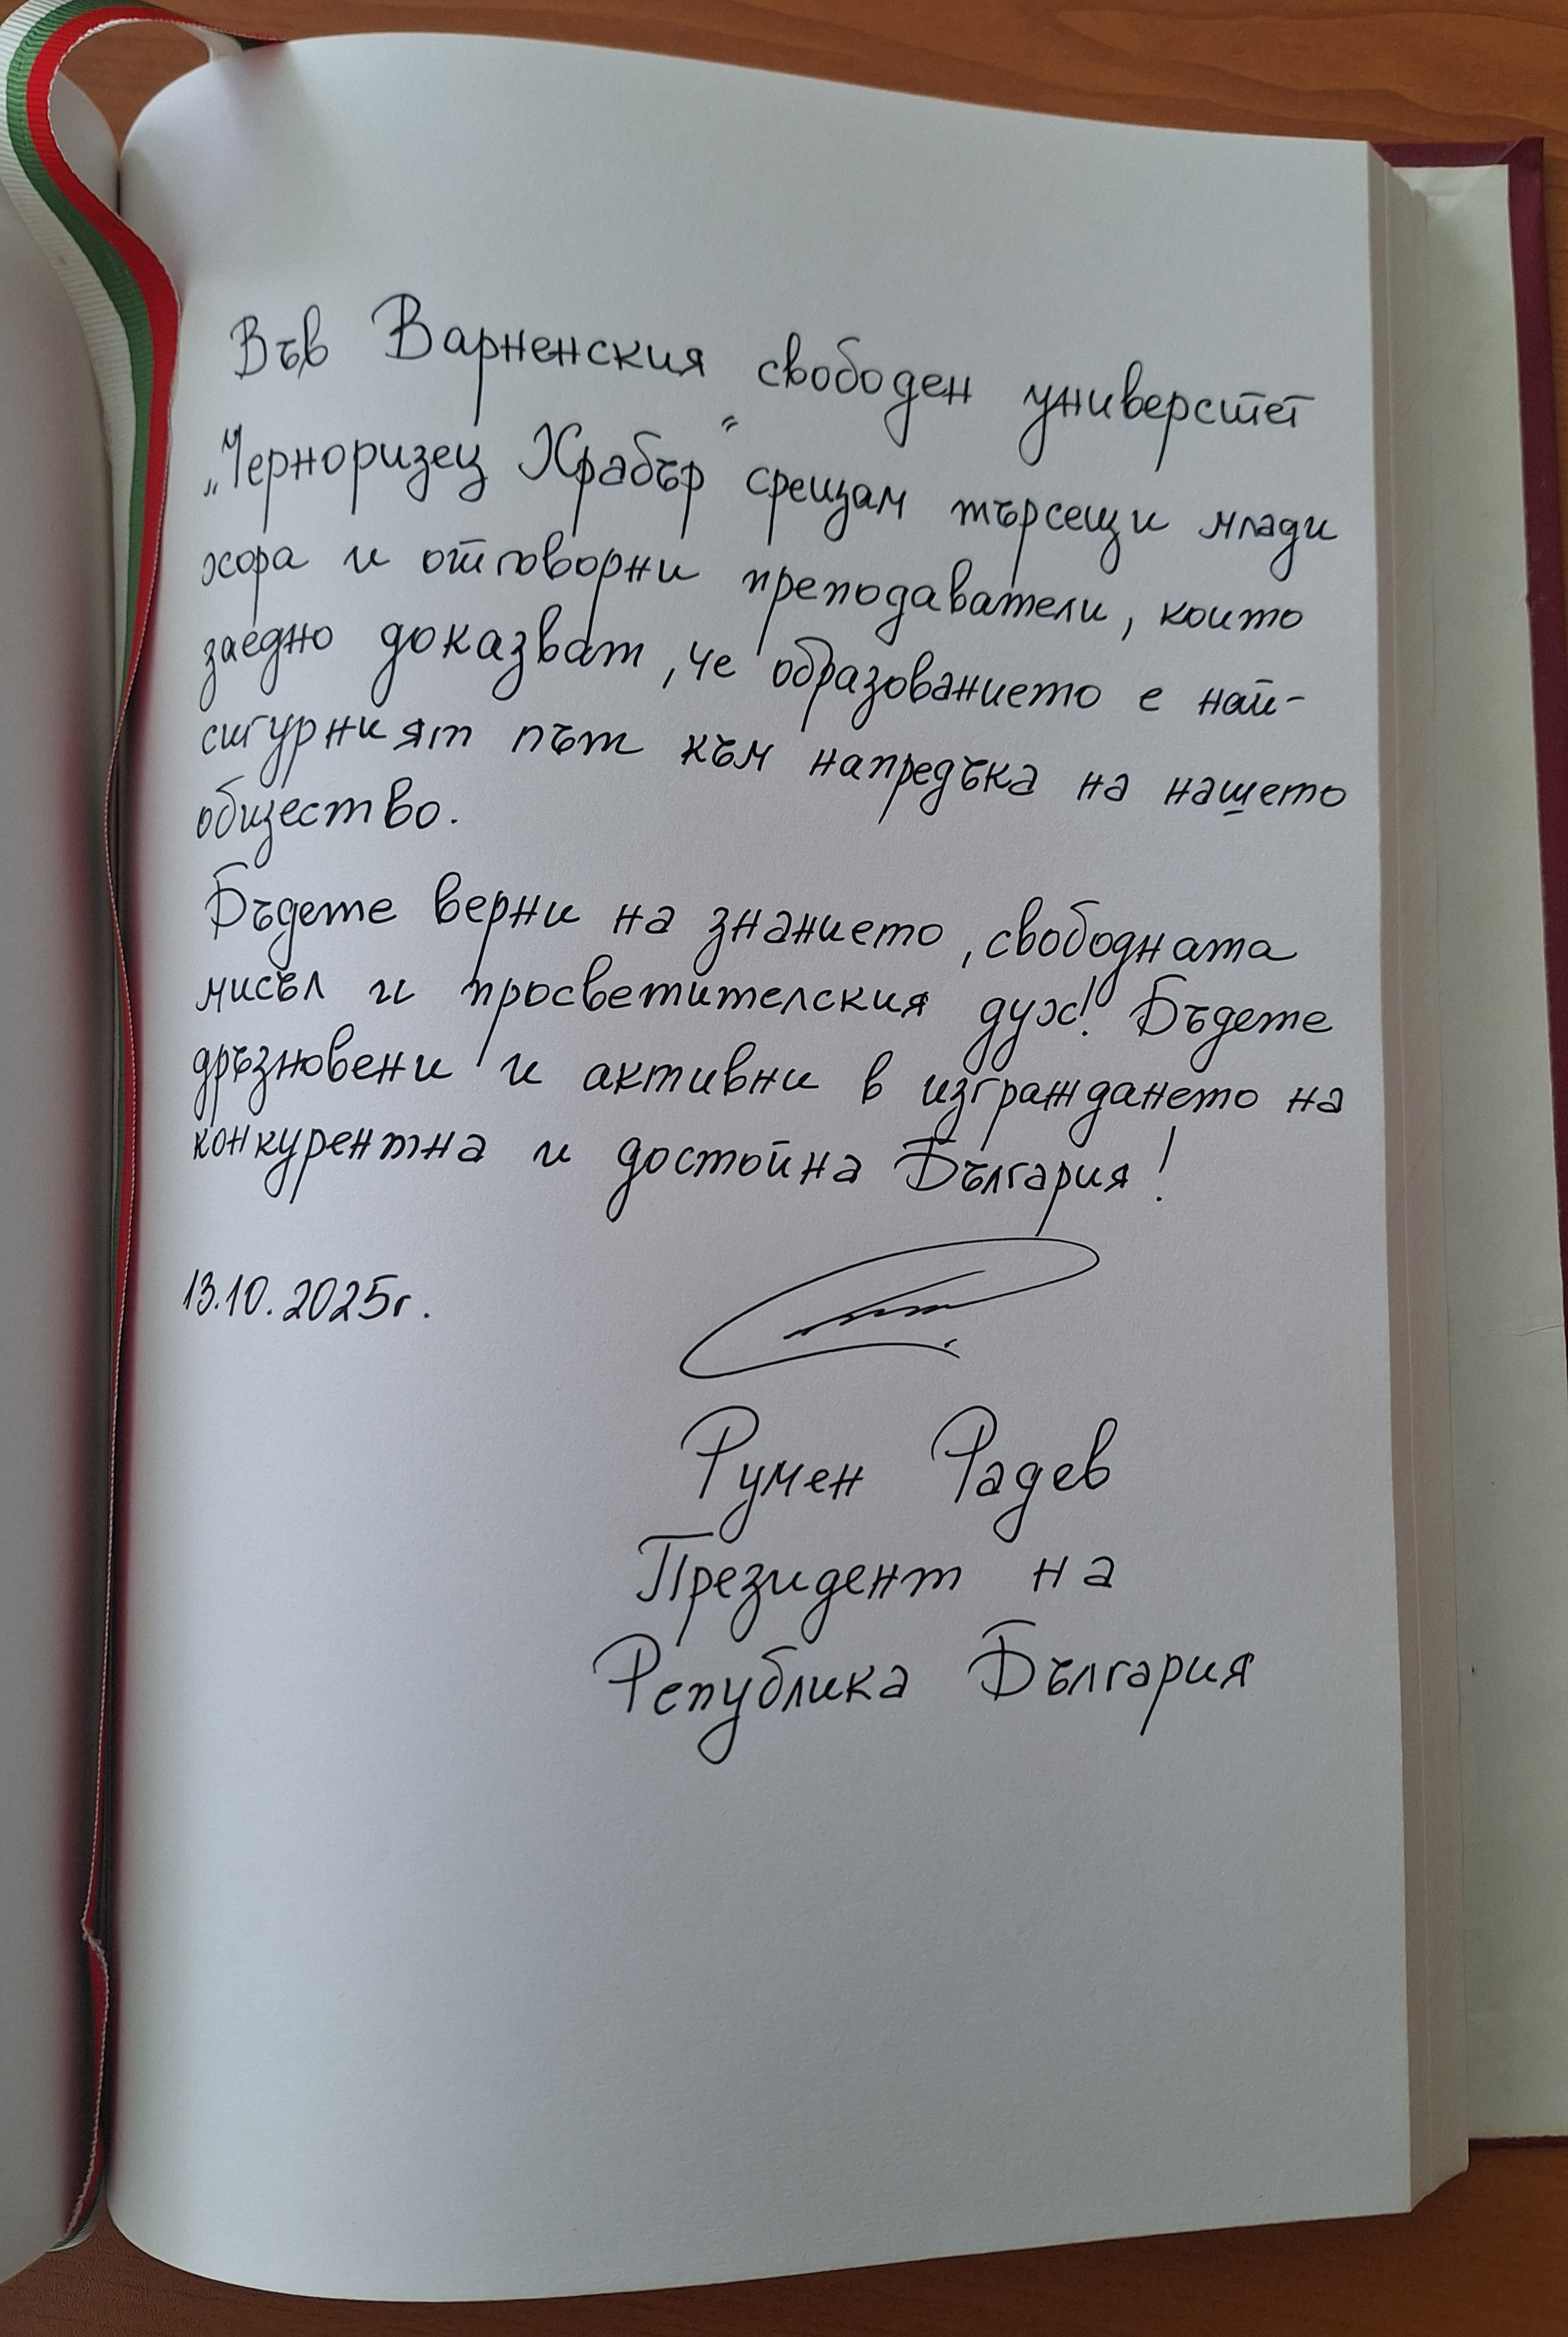 Във Варненския свободен университет
„Черноризец Храбър“ срещам търсещи млади
хора и отговорни преподаватели, които
заедно доказват, че образованието е най-
сигурният път към напредъка на нашето
общество.
Бъдете верни на знанието, свободната
мисъл и просветителския дух! Бъдете
дръзновени и активни в изграждането на
конкурентна и достойна България!
13.10.2025г.
Румен Радев
Президент на
Република България